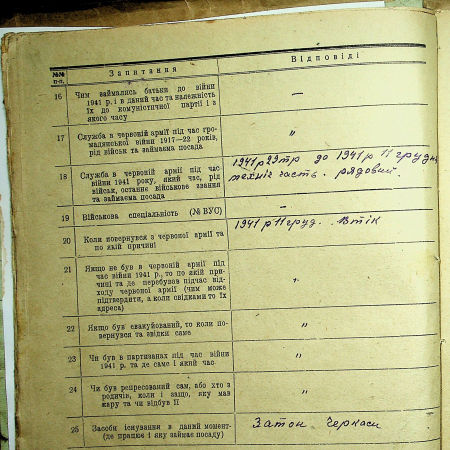 №№ п-п. Запитання Відповіді
16 Чим займались батьки до війни
1941 р. і в даний час та належність
їх до комуністичної партії і з
якого часу
—
17 Служба в червоній армії під час гро-
мадянської війни 1917—22 років,
рід військ та займаєма посада
"
18 Служба в червоній армії під час
війни 1941 року, який час, рід
військ, останнє військове звання
та займаєма посада
1941 р до 1941 р 11 грудн
техніч часть. рядовий.
19 Військова спеціяльність (№ ВУС)
—
20 Коли повернувся з червоної армії та
по якій причині
1941 р 11 груд. Втік
21 Якщо не був в червоній армії під
час війни 1941 р., то по якій при-
чині та де перебував підчас від-
ходу червоної армії (чим може
підтвердити, а коли свідками то їх
адреса)
22 Якщо був евакуйований, то коли по-
вернувся та звідки саме
"
23 Чи був в партизанах під час війни
1941 р. та де саме і який час
"
24 Чи був репресований сам, або хто з
родичів, коли і защо, яку мав
кару та чи відбув її
"
25 Засоби існування в даний момент-
(де працює і яку займає посаду)
Затон Черкаси